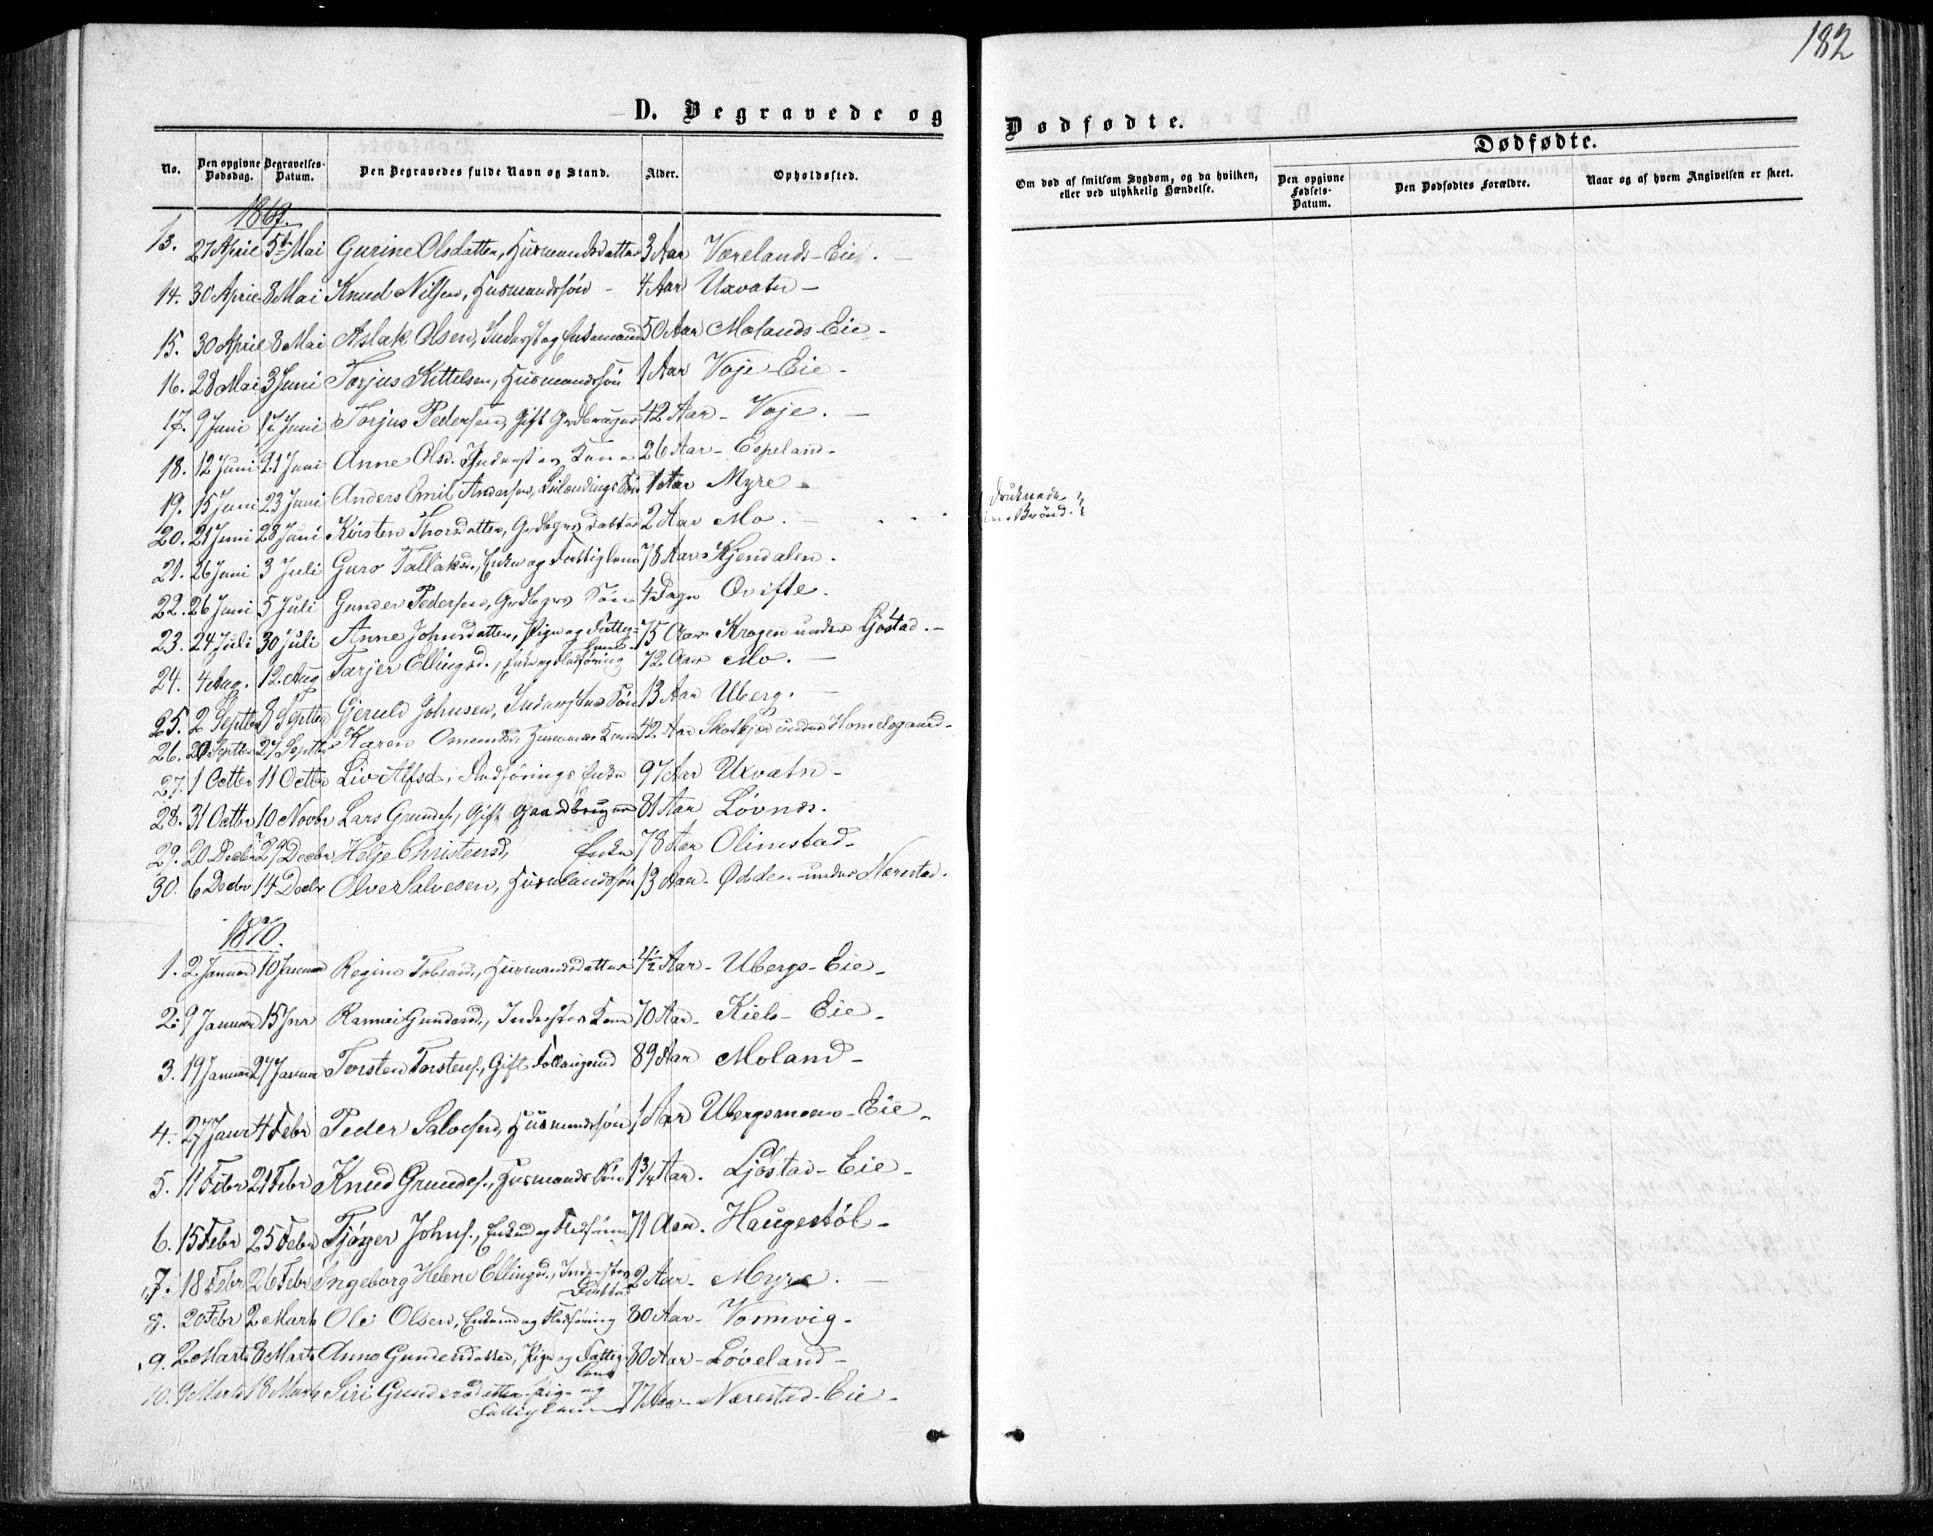 182
D. Begravede og Dødfødte.
Dødfødte.
No. Den opgivne Dødsdag. Begravelses-Datum. Den Begravedes fulde Navn og Stand. Alder. Opholdssted. Om død af smitsom Sygdom, og da hvilken, eller ved ulykkelig Hændelse. Den opgivne Fødsels-Datum. Den Dødfødtes Forældre. Naar og af hvem Angivelsen er skeet.
1869.
13. 27 April 5te Mai Gurine Olsdatter, Husmandsdatter 3 Aar Værelands-Eie.
14. 30 April 8 Mai Knud Nilsen, Husmandssön - 4 Aar Uxvatn -
15. 30 April 8 Mai Aslak Olsen, Inderst og Enkemand 50 Aar Molands-Eie -
16. 28 Mai 3 Juni Torjus Kittelsen, Husmandssön 1 Aar Voje Eie -
17. 9 Juni 17 Juni Torjus Pedersen, Gift Grdbruger 42 Aar - Voje. -
18. 12 Juni 21 Juni Anne Olsd. Inderstes Kone 26 Aar - Espeland -
19. 15 Juni 23 Juni Anders Emil Andersen, Leilændings Sön 1 Aar Myre -
20. 21 Juni 28 Juni Kirsten Thorsdatter, Grdbgrs Datter 2 Aar Mo. - druknede i en Brønd.
21. 26 Juni 3 Juli Guro Tallaksd., Enke og Fattiglem 78 Aar Kjendalen.
22. 26 Juni 5 Juli Gunder Pedersen, Grdbgrs Sön 4 Dage Qvifte.
23. 24 Juli 30 Juli Anne Johnsdatter, Pige og Fattiglem 75 Aar Krogen under Ljöstad. -
24. 4 Aug. 12. Aug Tarjer Ellingsd., Enke og Fledföring 72. Aar Mo. -
25. 2 Septbr 8 Septbr Gjeruld Johnsen, Inderstes Sön 13 Aar Uberg. -
26. 20 Septbr 27 Septbr Karen Omundsd, Husmands Kone 42 Aar under Homelsgaard -
27. 1 Octbr 11 Octbr Liv Alfsd., Fledförings Enke 97 Aar Uxvatn -
28. 31 Octbr 10 Novbr Lars Gundes., Gift Gaardbruger 81 Aar Løvnes.
29. 20 Decbr 29 Decbr Helje Christensd, Enke 78 Aar Olimstad -
30. 6 Decbr 14 Decbr Olve Salvesen, Husmandssön 13 Aar - Ødden under Nærestad.
1870.
1. 2 Januar 10 Januar Regine Tobiasd., Husmandsdatter 4½ Aar - Ubergs-Eie -
2. 9 Januar 15 Jnr Rannei Gundersd., Inderstes Kone 70 Aar - Kiels- Eie -
3. 19 Januar 27 Januar Torsten Torstens., Gift 89 Aar Moland -
4. 27 Janr 4 Febr Peder Salvesen, Husmandssön 1 Aar Ubergsmoens-Eie -
5. 11 Febr 21 Febr Knud Gundes., Husmands Sön 1¾ Aar. Ljöstad-Eie -
6. 15 Febr 25 Febr Tjöger Johns., Enkem og Fledföring 71 Aar. Haugestöl -
7. 18 Febr 26 Febr Ingeborg Helene Ellingsd., Inderstes Datter 2 Aar - Myre. -
8. 20 Febr 2 Marts Ole Olsen, Enkemd og Fledföring 80 Aar - Vormvig -
9. 2 Marts 8 Marts Anne Gundersdatter, Pige og Fattiglem 80 Aar - Löveland -
10. 9 Marts 18 Marts Siri Gundersdatter Pige og Fattiglem 77 Aar - Nærestad-Eie -